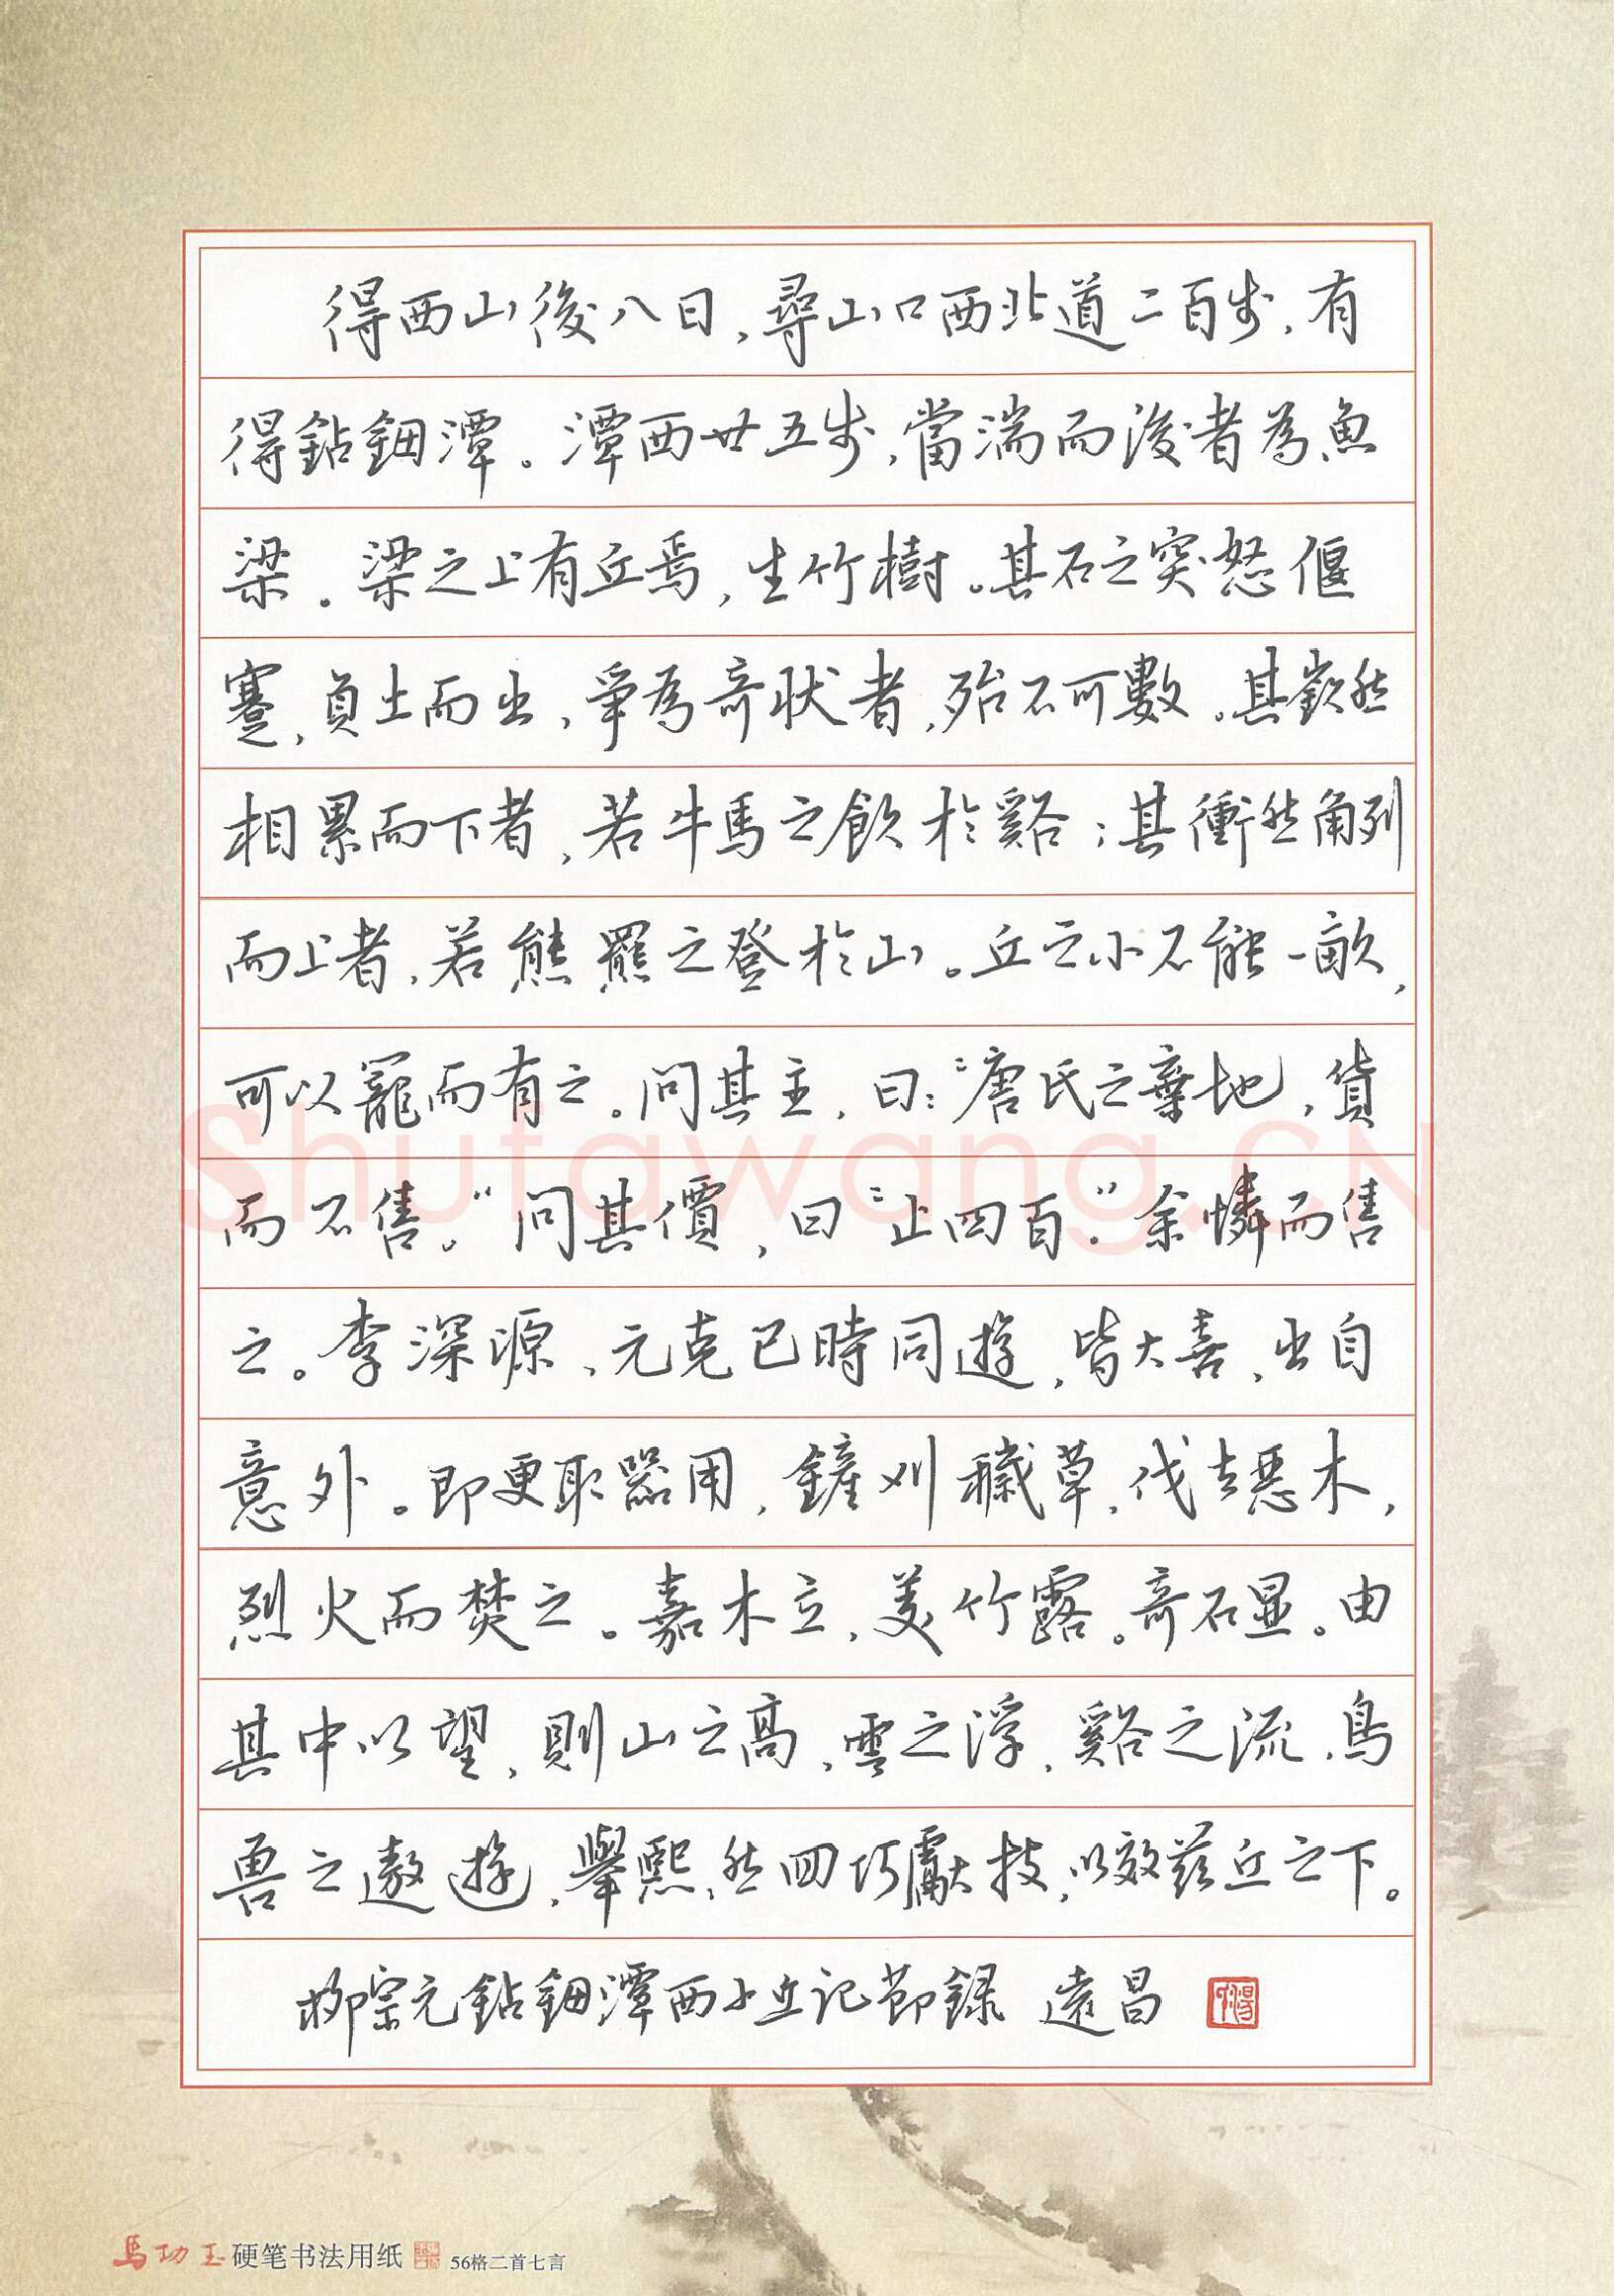 得西山後八日，尋山口西北道二百步，有
得鈷鉧潭。潭西廿五步，當湍而浚者為魚
梁。梁之上有丘焉，生竹樹。其石之突怒偃
蹇，負土而出，爭為奇狀者，殆不可數。其嶔然
相累而下者，若牛馬之飲於谿；其衝然角列
而上者，若熊羆之登於山。丘之小不能一畝，
可以籠而有之。問其主，曰：“唐氏之棄地，貨
而不售。”問其價，曰“止四百”。余憐而售
之。李深源、元克己時同遊，皆大喜，出自
意外。即更取器用，鏟刈穢草，伐去惡木，
烈火而焚之。嘉木立，美竹露。奇石显。由
其中以望，則山之高，雲之浮，谿之流，鳥
兽之遨遊，舉熙，然回巧獻技，以效茲丘之下。
柳宗元鈷鉧潭西小丘記節録 遠昌
Shufawang.CN
馬功玉 硬笔书法用纸 56格二首七言